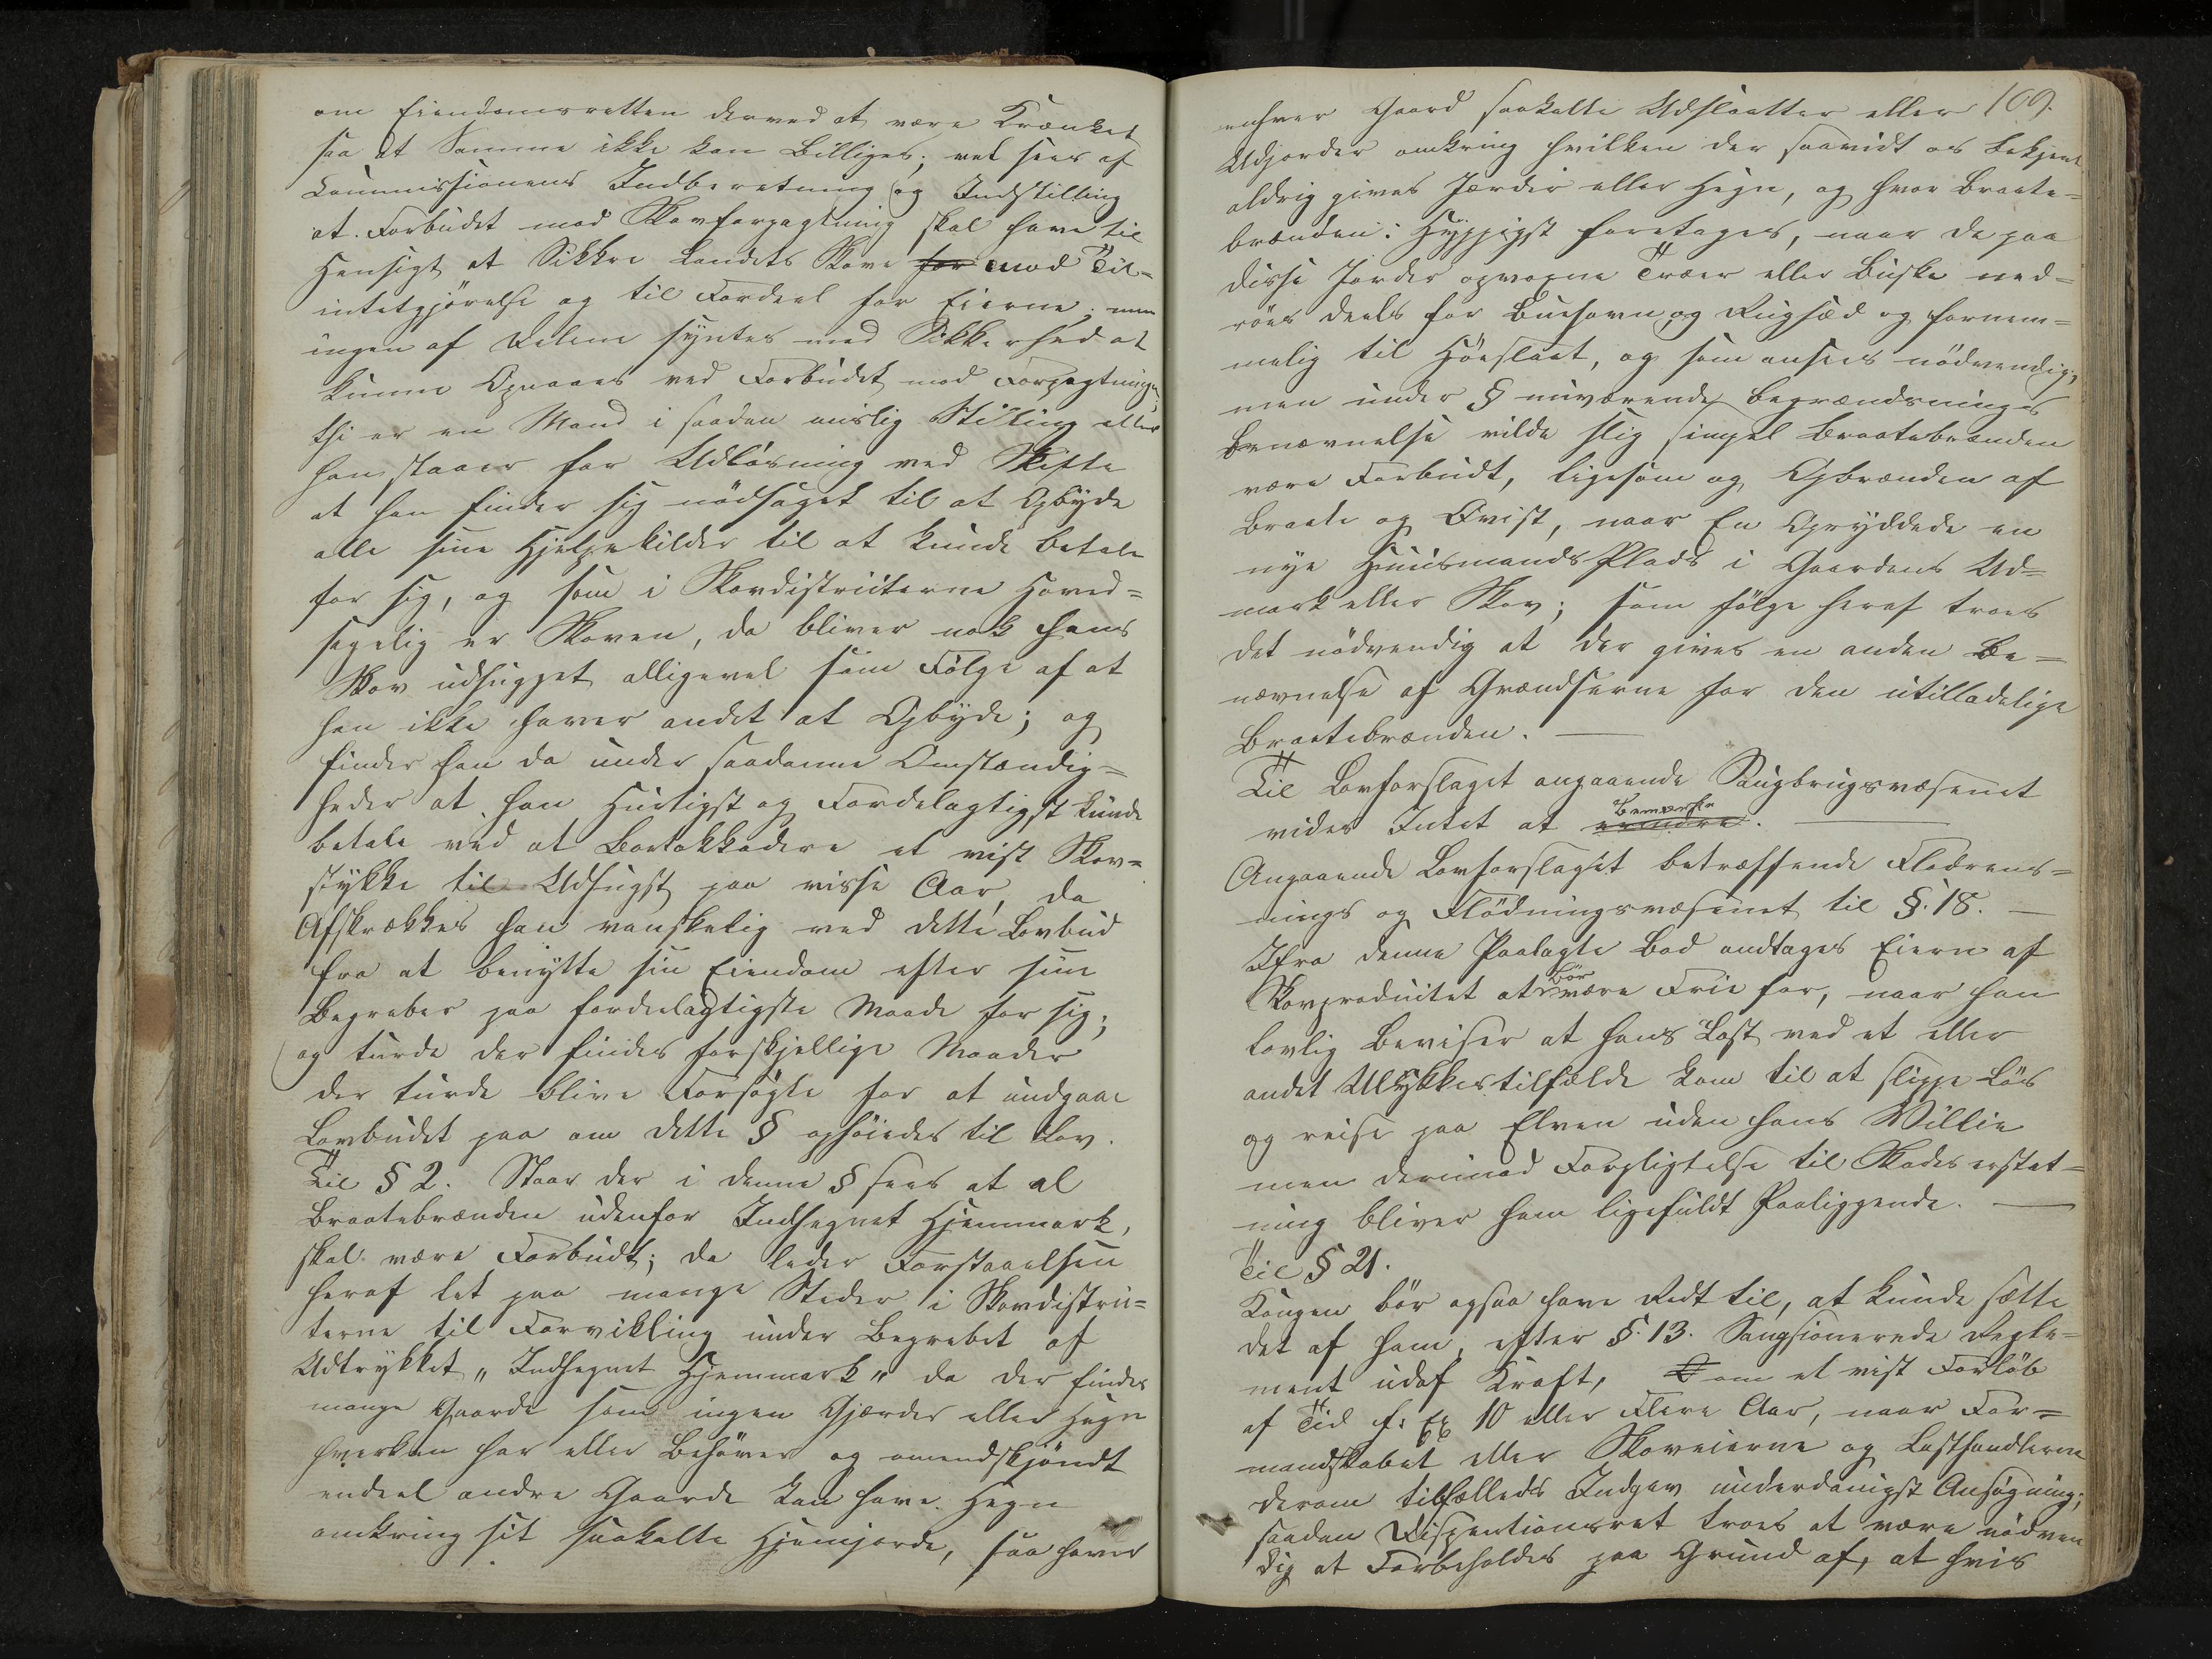 om Eiendomsretten derved at være Krænket
saa at Samme ikke kan Billiges; vel sees af
Commissionens Indberetning og Indstilling
at Forbudet mod Skovforpagtning skal have til
Hensigt at Sikkre Landets Skove for mod Til-
intetgjörelse og til Fordeel for Eierne; men
ingen af Delene syntes med Sikkerhed at
kunne Opnaaes ved Forbudet mod Forpagtninger
thi er en Mand i saadan mislig Stilling eller
han staaer for Udlösning ved Skifte
at han finder sig nödsaget til at Opbyde
alle sine Hjelpekilder til at kunde betale
for sig, og som i Skovdistricterne Hoved-
sagelig er Skoven, da bliver nok hans
Skov udhugget alligevel som Fölge af at
han ikke haver andet at Opbyde; og
finder han da under saadanne Omstændig-
heder at han Hurtigst og Fordelagtigst kunde
betale ved at Bortakkodere et vist Skov-
stykke til Udhugst paa visse Aar, da
Afskrækkes han vanskelig ved dette Lovbud
fra at benytte sin Eiendom efter sine
Begreber paa fordeelagtigste Maade for sig;
og turde der findes forskjellige Maader
der turde blive Forsögte for at undgaae
Lovbudet paa om dette § ophöiedes til Lov.
Til § 2. Staar der i denne § sees at al
Braatebrænden udenfor Indhegnet Hjemmark,
skal være Forbudt; da leder Forstaaelsen
heraf let paa mange Steder i Skovdistric-
terne til Forvikling under Begrebet af
Udtrykket „Indhegnet Hjemmark" da der findes
mange Gaarde som ingen Gjærder eller Hegn
hverken har eller Behöver og omendskjöndt
endeel andre Gaarde kan have Hegn
omkring sit saakalte Hjemjorde, saa haver
109.
enhver Gaard saakalte Udslaatter eller
Udjorder omkring hvilken der saavidt os bekjent
aldrig gives Jærder eller Hegn, og hvor Braate-
brænden: Hyppigst foretages, naar de paa
disse Jorder opvoxne Træer eller Buske ned-
röes deels for Buehavn og Rugsæd og fornem-
melig til Höeslaat, og som ansees nödvendig;
men under § nuværende Begrændsninges
Benævnelse vilde slig simpel Braatebrænden
være Forbudt, ligesom og Opbrænden af
Braate og Qvist, naar En Opryddede en
nye Huusmands Plads i Gaardens Ud-
mark eller Skov; som fölge heraf troes
det nödvendig at der gives en anden Be-
nævnelse af Grændserne for den utilladelige
Braatebrænden.
Til Lovforslaget angaaende Saugbrugsvæsenet
vides Intet at erindre Bemærke.
Angaaende Lovforslaget betræffende Flodrens-
nings og Flödningsvæsenet til §. 18.
Ifra denne Paalagte Bod andtages Eieren af
Skovproductet at bör være Frie for, naar han
lovlig Beviser at hans Last ved et eller
andet Ulykkestilfælde kom til at slippe lös
og reise paa Elven uden hans Villie
men derimod Forpligtelse til Skadeserstat-
ning bliver ham ligefuldt Paaliggende.
Til § 21.
Kongen bör ogsaa have Rett til, at kunde sætte
det af ham, efter §. 13. Sangsionerede Regle-
ment udaf Kraft, om et vist Forlöb
af Tid f: Ex 10 eller Flere Aar, naar For-
mandskabet eller Skoveierne og Lasthandlerne
derom tilfælleds Indgav underdanigst Ansögning;
saadan Dispentionsret troes at være nödven
dig at Forbeholdes paa Grund af, at hvis